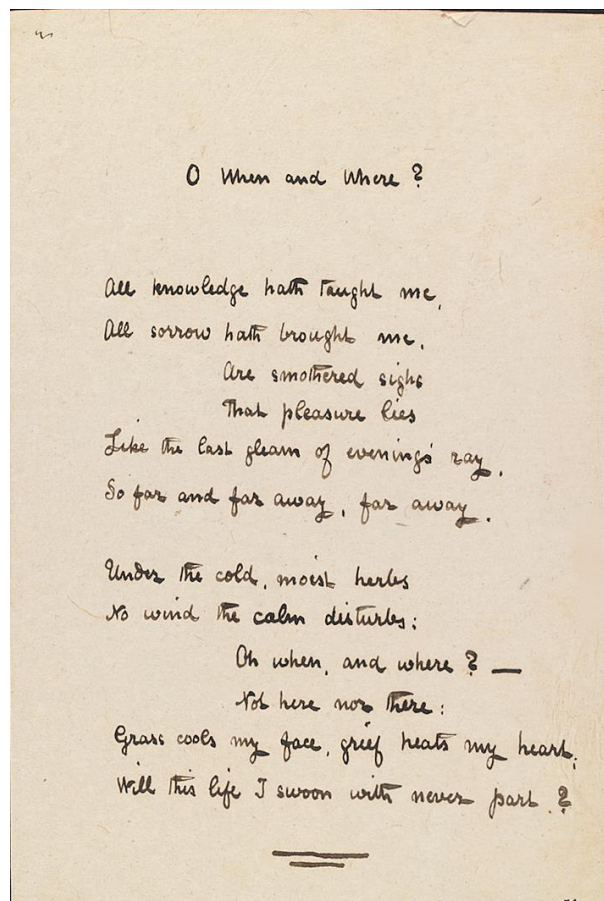 O When and Where?
All knowledge hath taught me,
All sorrow hath brought me,
Are smothered sighs
That pleasure lies
Like the last gleam of evenings' ray,
So far and far away, far away.
Under the cold, moist herbs
No wind the calm disturbs:
Oh when, and where? —
Not here nor there:
Grass cools my face, grief heats my heart;
Will this life I swoon with never part?